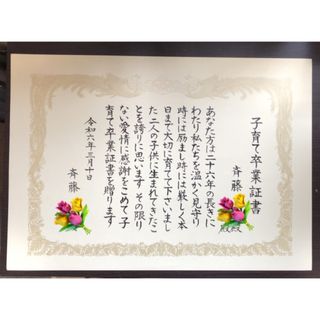 子育て卒業証書
斉藤
殿
殿
あなた方は二十六年の長きに
わたり私たちを温かく見守り
時には励まし時には厳しく本
日まで大切に育てて下さいまし
た二人の子供に生まれてきたこ
とを誇りに思います その限り
ない愛情に感謝をこめて子
育て卒業証書を贈ります
令和六年三月十日
斉藤